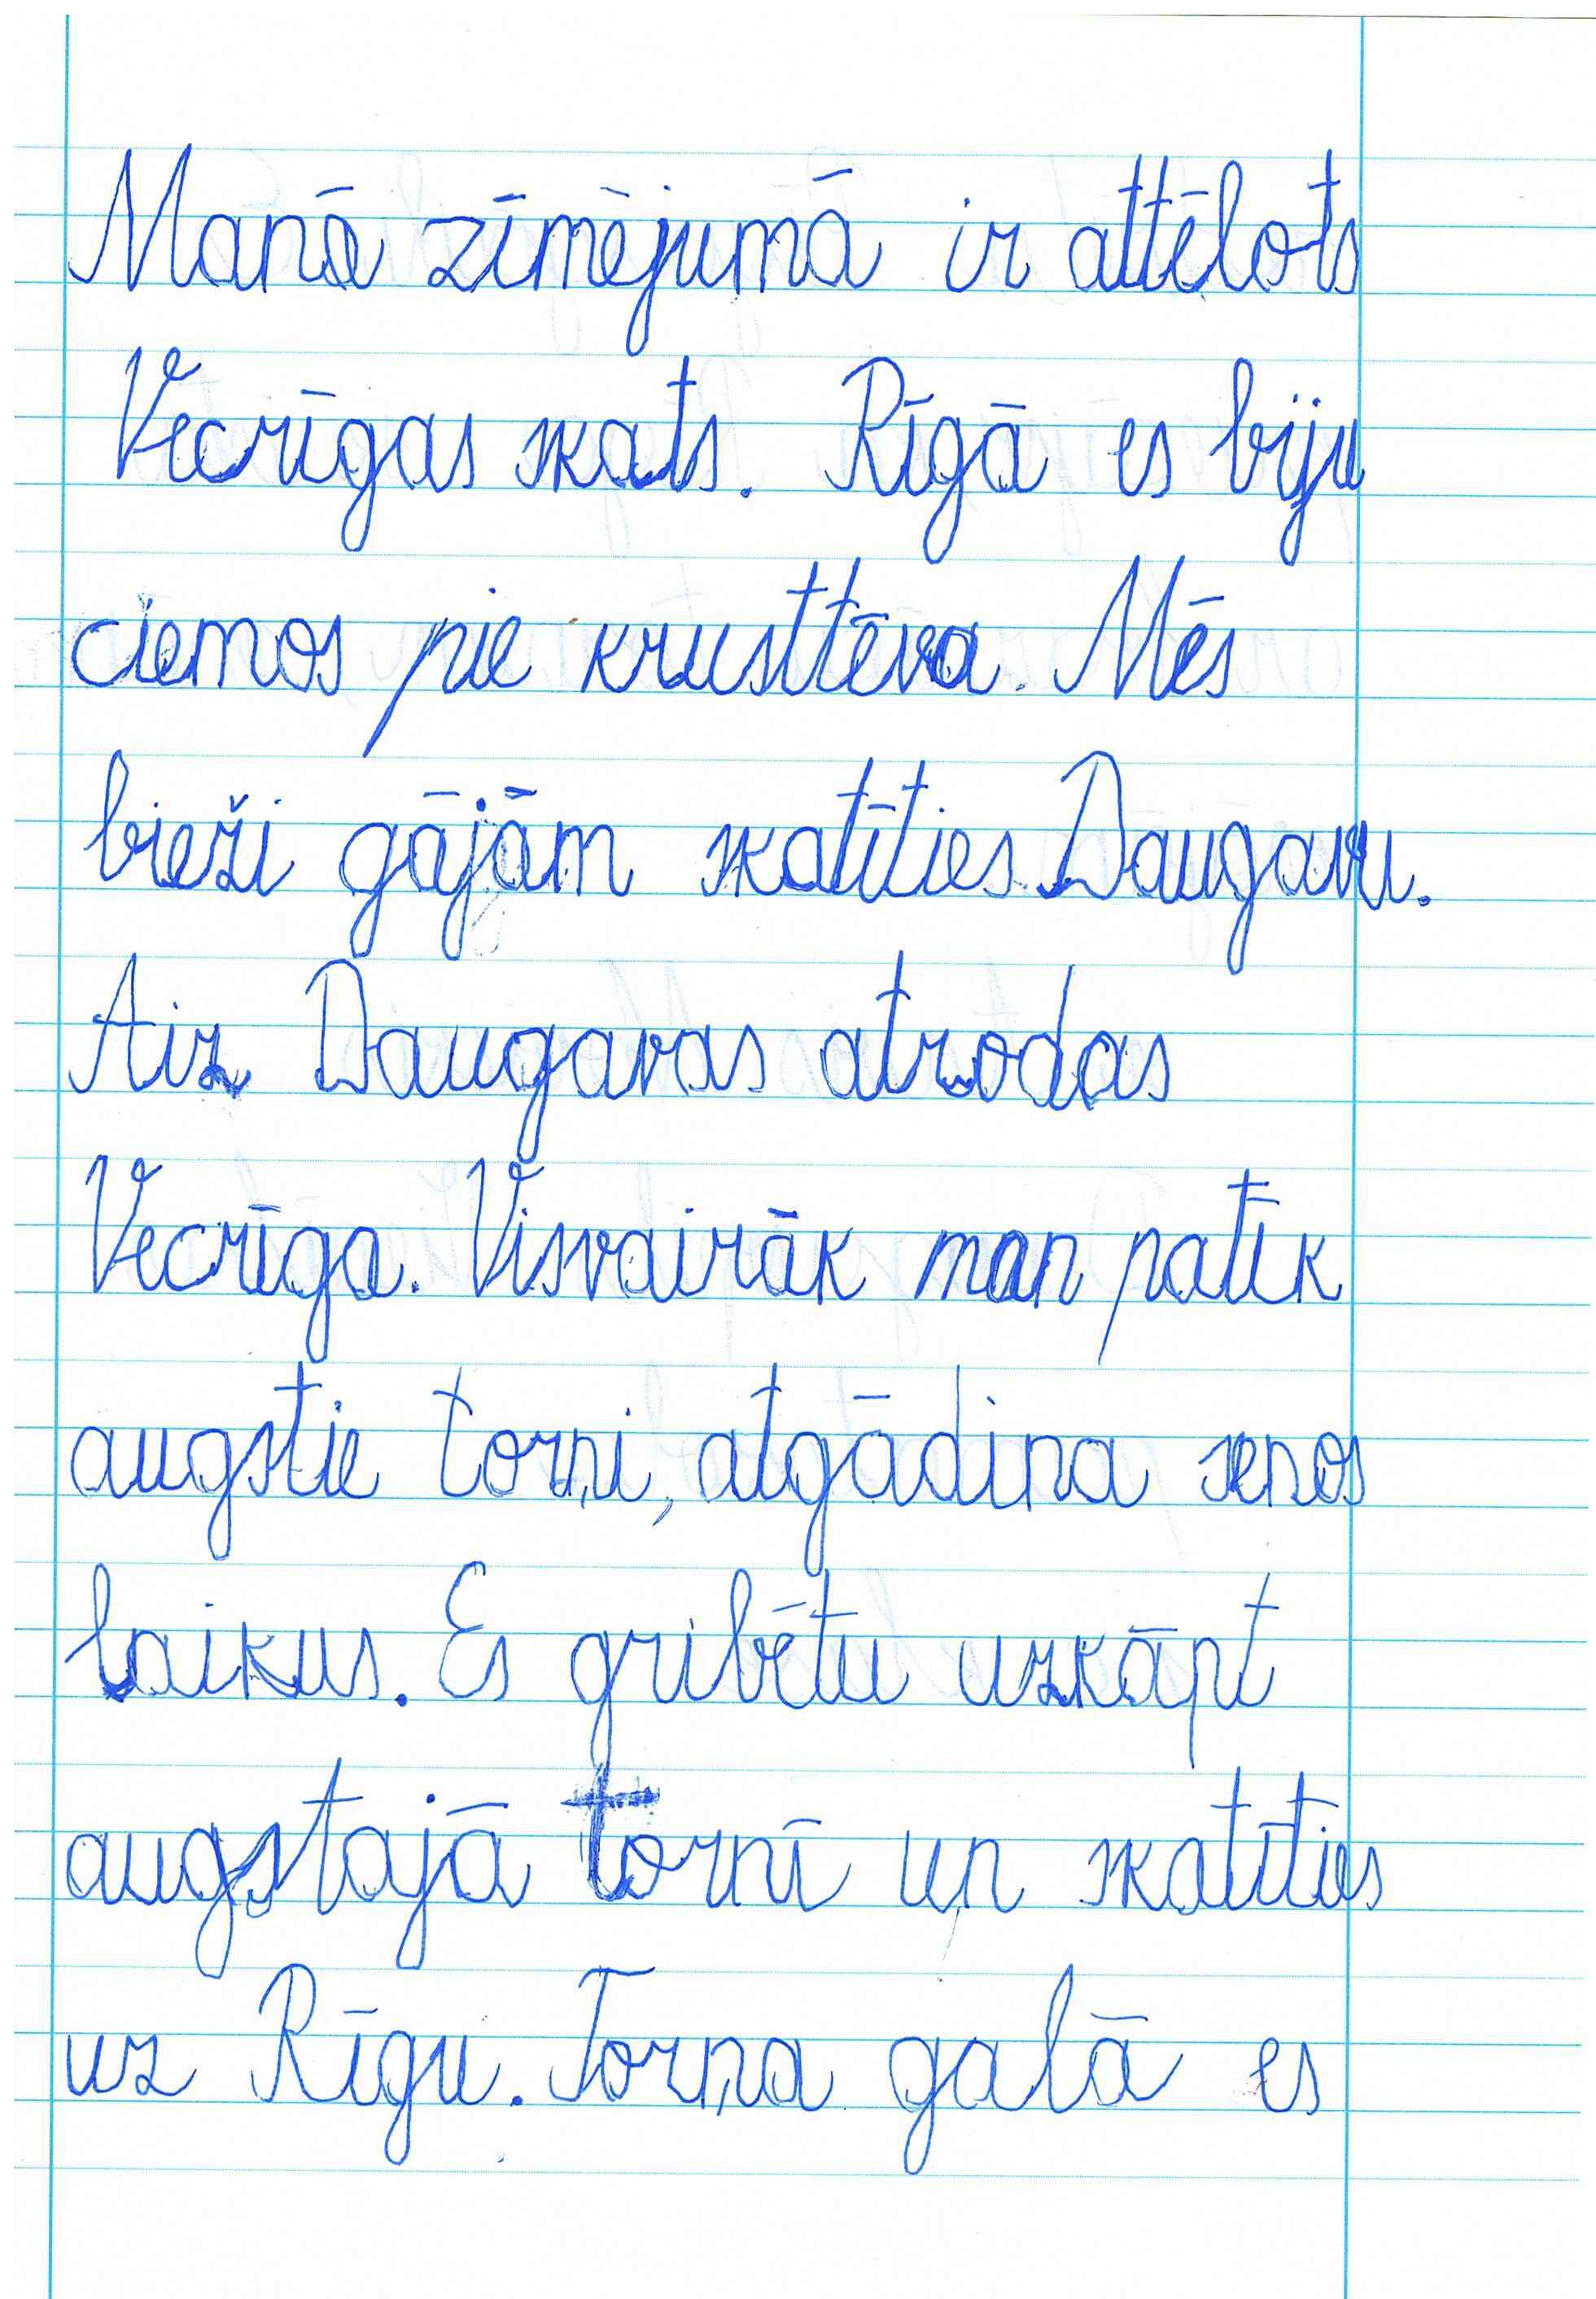 Manā zīmējumā ir attēlots
Vecrīgas skats. Rīgā es biju
ciemos pie krusttēva. Mēs
bieži gājām skatīties Daugavu.
Aiz Daugavas atrodas
Vecrīga. Visvairāk man patīk
augstie torņi, atgādina senos
laikus. Es gribētu uzkāpt
augstajā tornī un skatīties
uz Rīgu. Torņa galā es